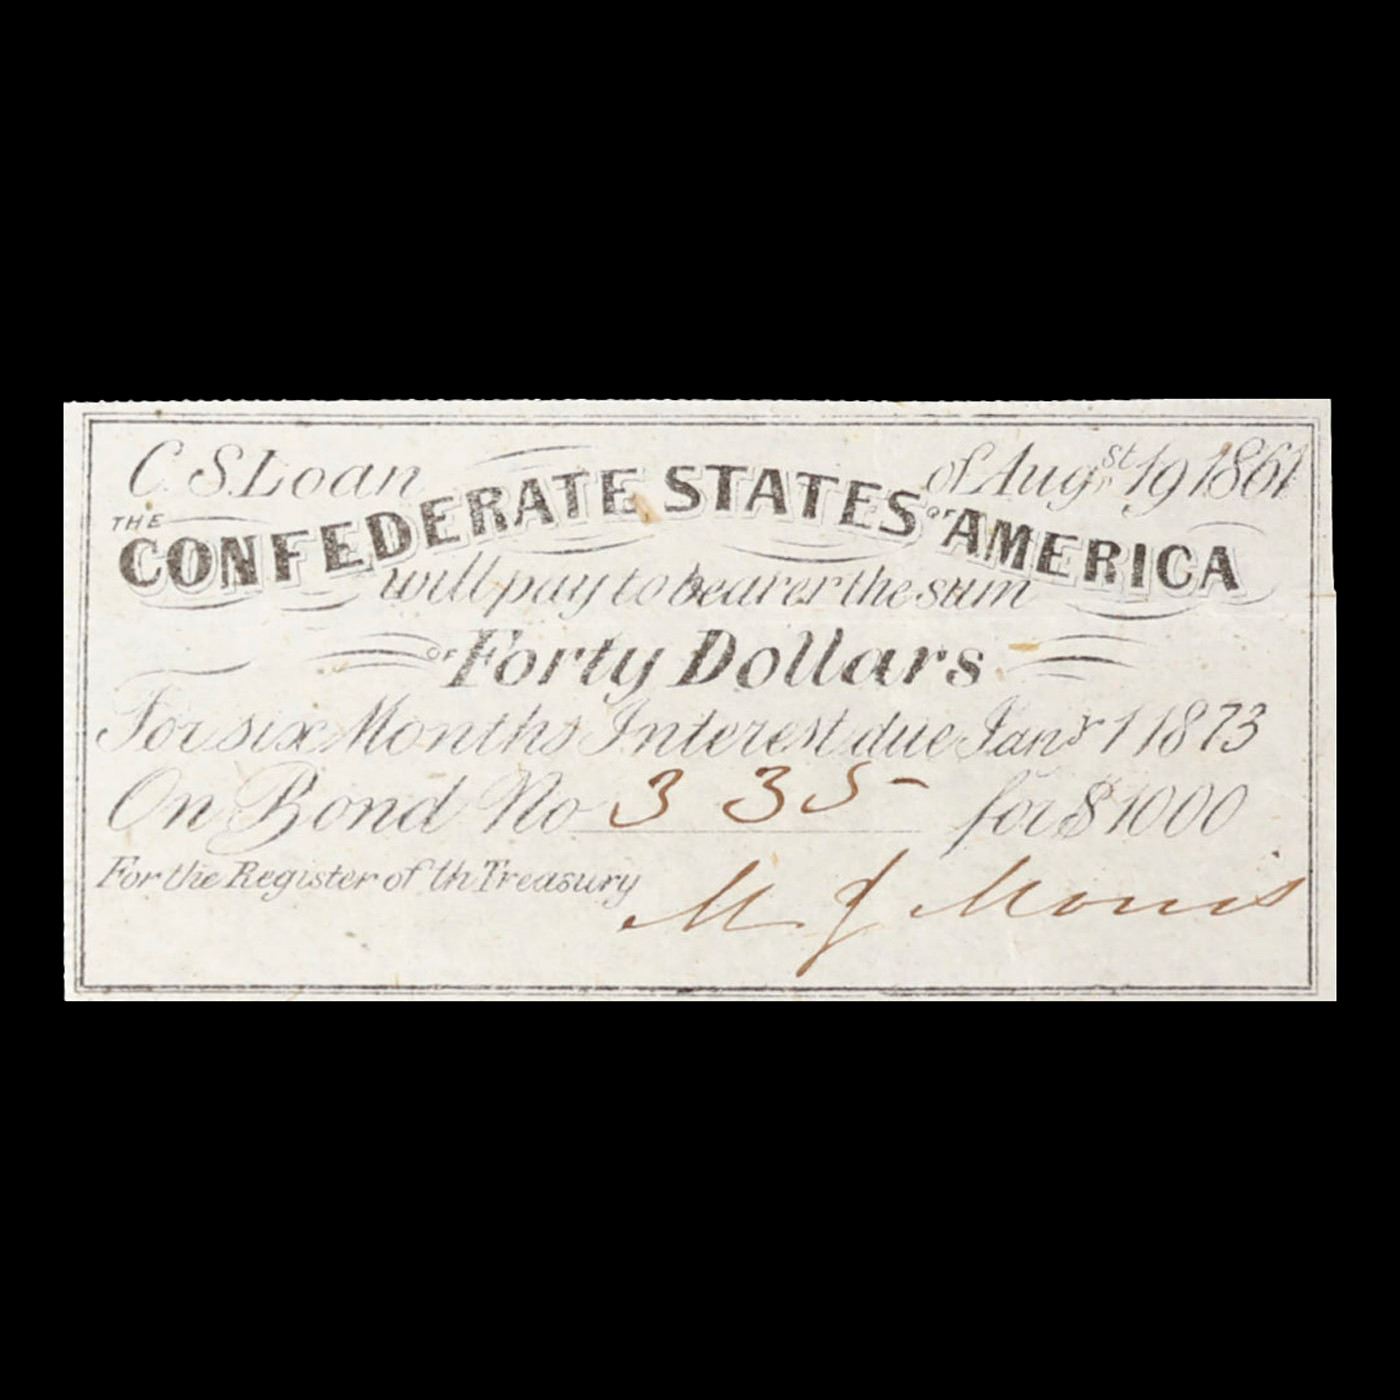 C. S. Loan of Augst 19 1861
THE CONFEDERATE STATES OF AMERICA
will pay to bearer the sum
OF Forty Dollars
For six Months Interest due Jany 1 1873
On Bond No 335 for $1000
For the Register of th Treasury M J Morris